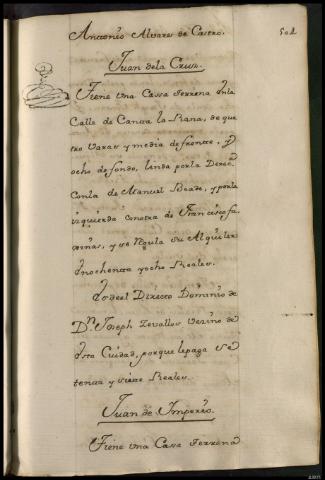 Anttonio Alvares de Castro.
502
Juan dela Cruz.
Tiene una Cassa terrena en la
Calle de Canta la Rana, de qua
tro varas y media de frente, y
ocho de fondo, linda por la Derecha
Con la de Manuel, y por la
izquierda con otra de Francisco fa
rinas, y se Regula su Alquiler
en ochenta y ocho Reales.
Es de el Directo Dominio de
Dn. Joseph Zevallos Vezino de
esta Ciudad, porque le paga Se
tenta y siete Reales.
Juan de Imperio.
Tiene una Cassa Terrena